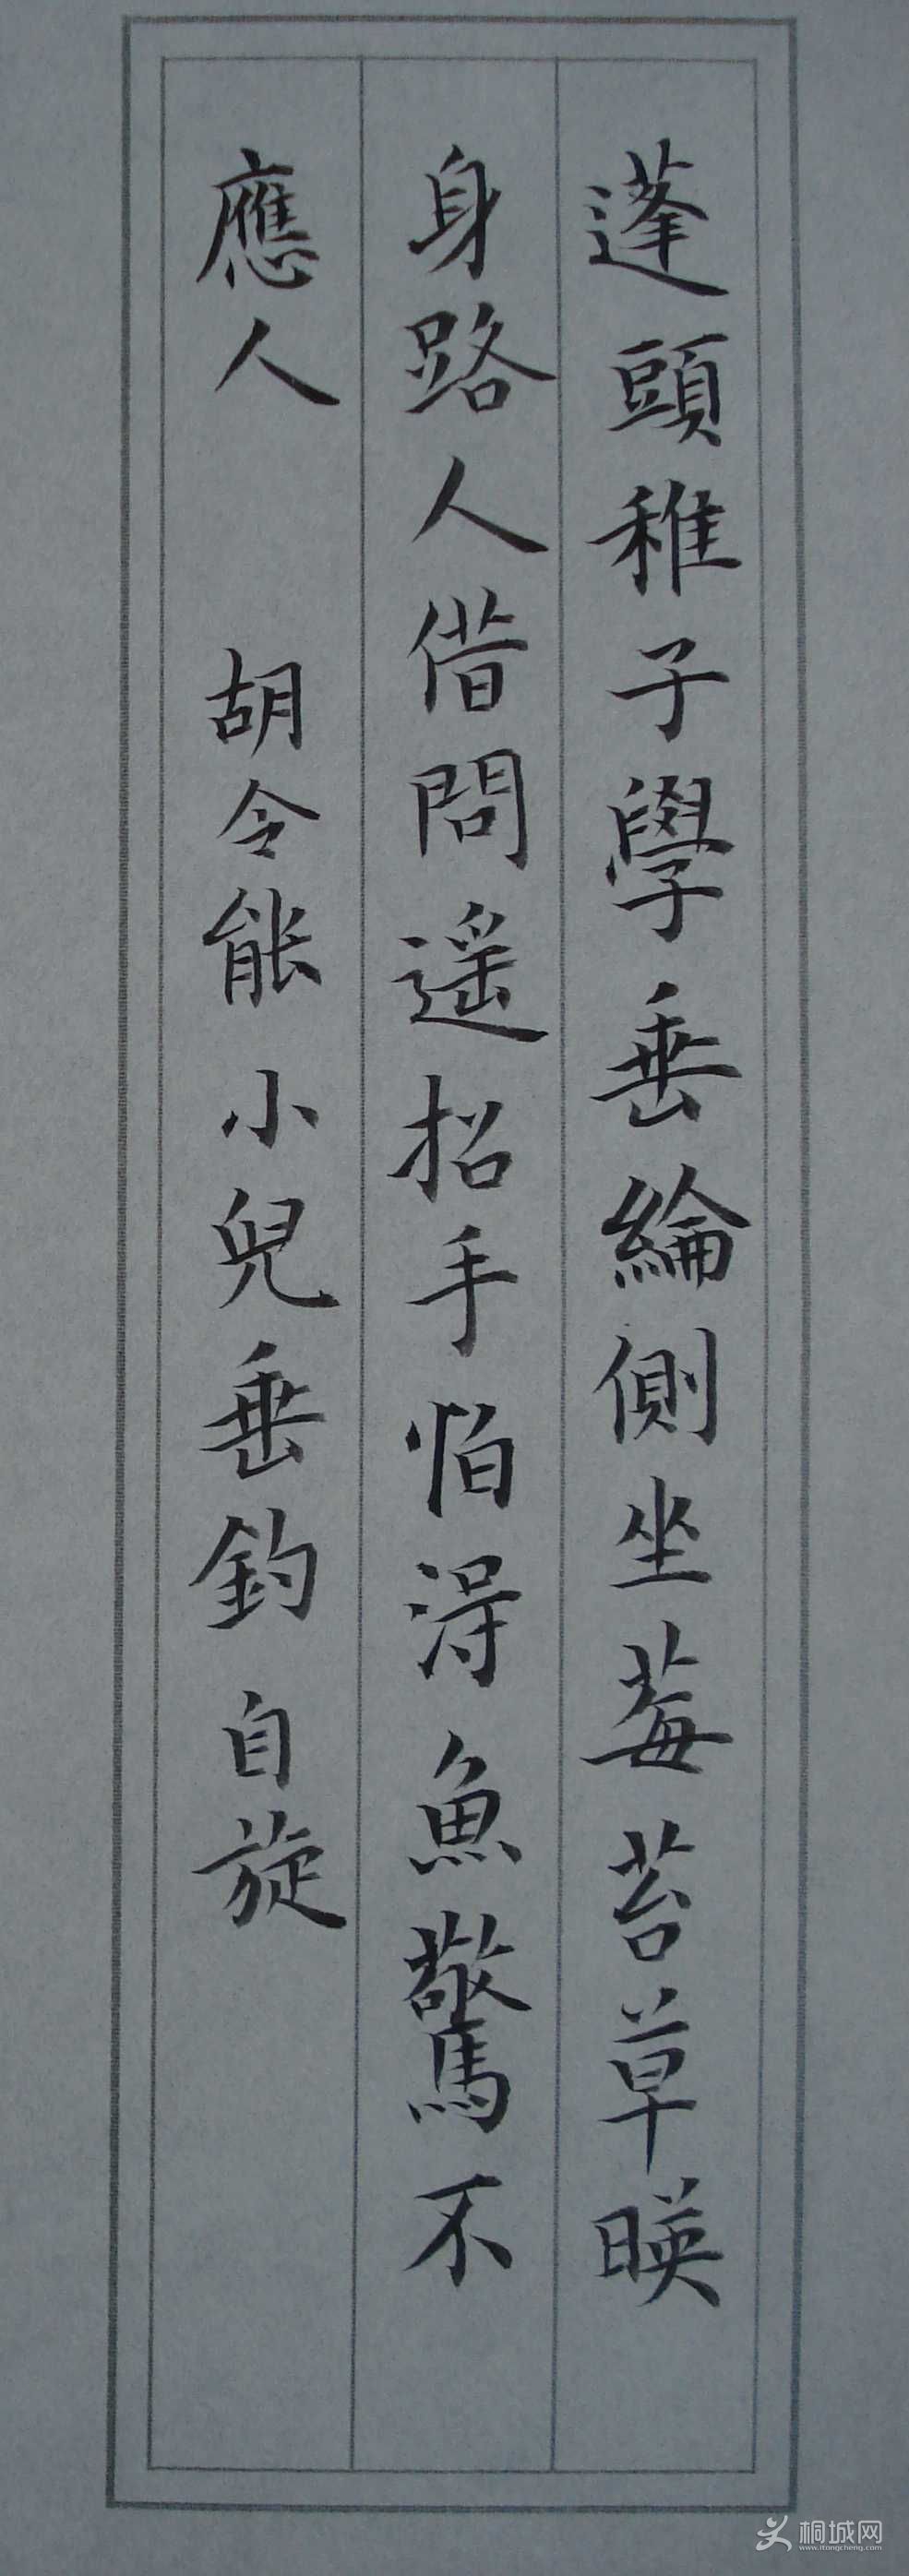 蓬頭稚子學垂綸側坐莓苔草暎
身路人借問遥招手怕得魚驚不
應人 胡令能小兒垂釣 自旋
桐城网
www.itongcheng.com